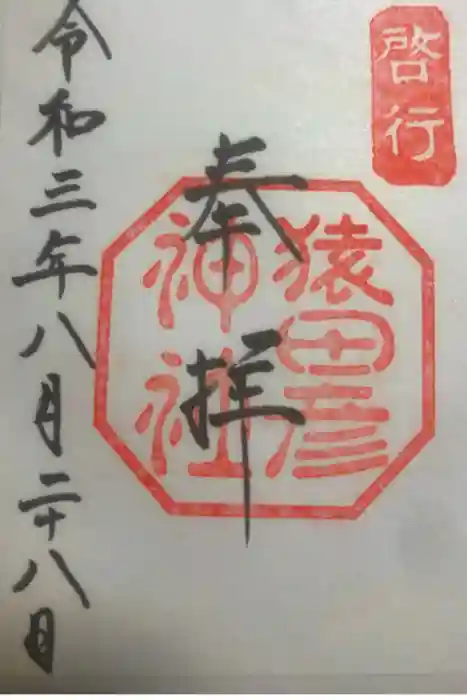 啓行
猿田彦
神社
奉拝
令和三年八月二十八日